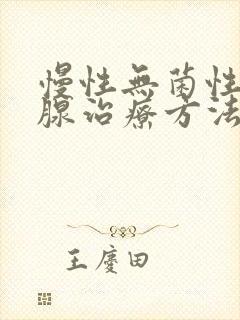 慢性無菌性
腺治療方法
王慶田